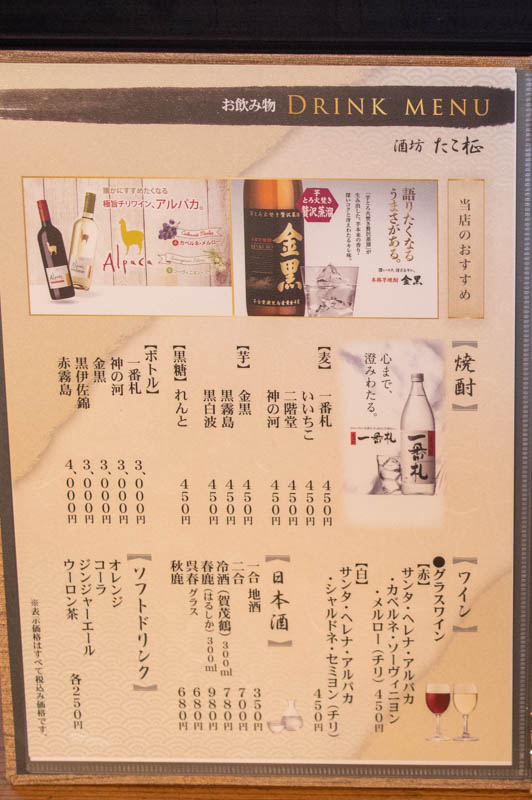 お飲み物 DRINK MENU
酒坊 たこ柾
当店のおすすめ
語りたくなる
うまさがある。
「芋とろ火焚き贅沢蒸溜」が
生み出した、芋本来の香り
深いコクと冴えわたるキレ味。
本格芋焼酎 金黒
芋とろ火焚き
贅沢蒸溜
金黒
誰かにすすめたくなる
極旨チリワイン、アルパカ。
Alpaca
カベルネ・メルロー
【焼酎】
心まで、
澄みわたる。
一番札
一番札
【麦】
一番札 450円
いいちこ 450円
二階堂 450円
神の河 450円
【芋】
金黒 450円
黒霧島 450円
黒白波 450円
【黒糖】れんと 450円
【ボトル】
一番札 3,000円
神の河 3,000円
金黒 3,000円
黒伊佐錦 3,000円
赤霧島 4,000円
【ワイン】
●グラスワイン
【赤】
サンタ・ヘレナ・アルパカ
・カベルネ・ソーヴィニヨン
・メルロー(チリ) 450円
【白】
サンタ・ヘレナ・アルパカ
・シャルドネ・セミヨン(チリ)
450円
【日本酒】
一合 地酒 350円
二合 700円
冷酒(賀茂鶴)300ml 780円
春鹿(はるしか)300ml 980円
呉春 グラス 680円
秋鹿 680円
【ソフトドリンク】
オレンジ
コーラ
ジンジャーエール
ウーロン茶 各250円
※表示価格はすべて税込み価格です。